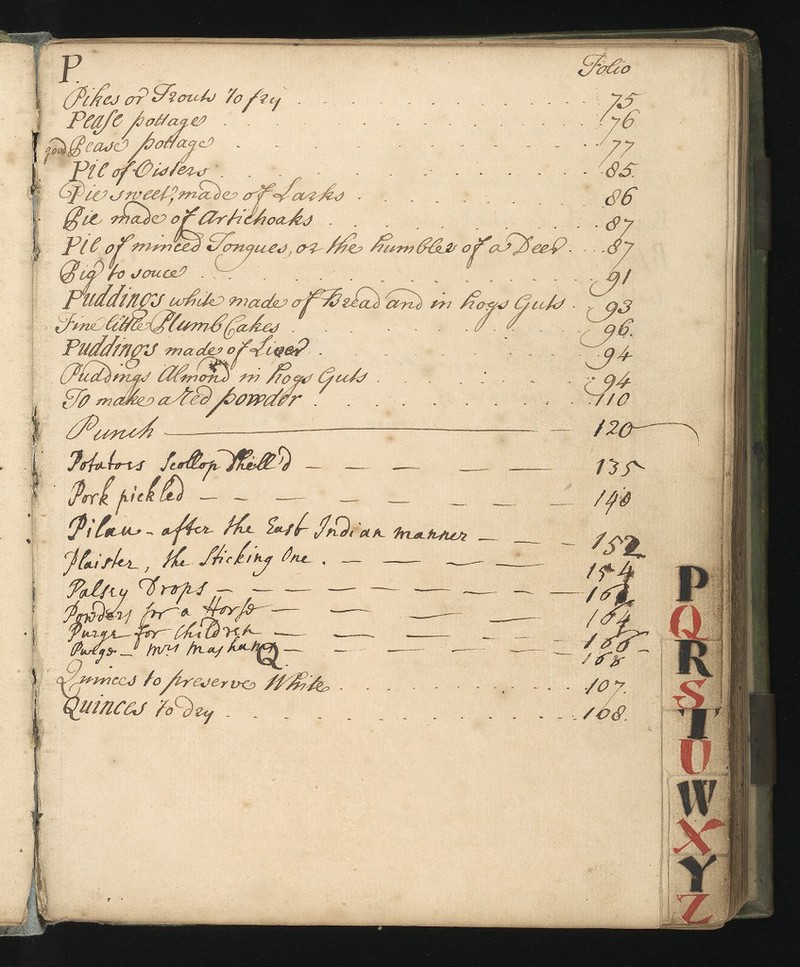 P. Folio
Pikes or Trouts to fry 75
Pease pottage 76
good Pease pottage 77
Pie of Oisters 85.
Pie sweet, made of Larks 86
Pie made of Artichoaks 87
Pie of minced Tongues, or the humbles of a Deer 87
Pig to souce 91
Puddings white made of Bread and in hogs Guts 93
Fine little Plumb Cakes 96.
Puddings made of Liver 94
Puddings Almond in hogs Guts 94
To make a red powder 110
Punch 120
Potatoes Scollop Shell'd 135
Pork pickled 140
Pilau - after the East Indian manner 152
Plaister, the Sticking One. 154
Palsey Drops
Powders for a Horse 164
Purge for Children 166
Purge - Mrs Masham 168
Q
Quinces to preserve White 107.
Quinces to dry 108.
P
Q
R
S
T
U
W
X
Y
Z